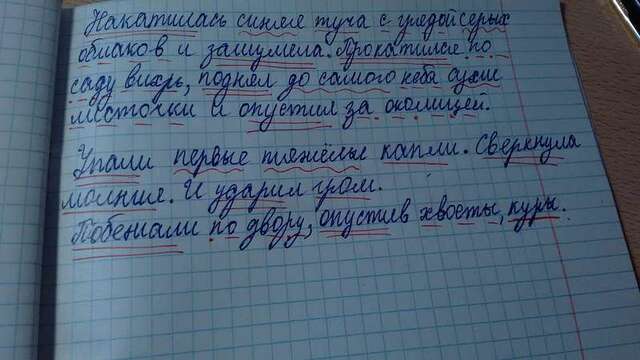 Накатилась синяя туча с грядой серых
облаков и зашумела. Прокатился по
саду вихрь, поднял до самого неба сухие
листочки и опустил за околицей.
Упали первые тяжёлые капли. Сверкнула
молния. И ударил гром.
Побежали по двору, опустив хвосты, куры.